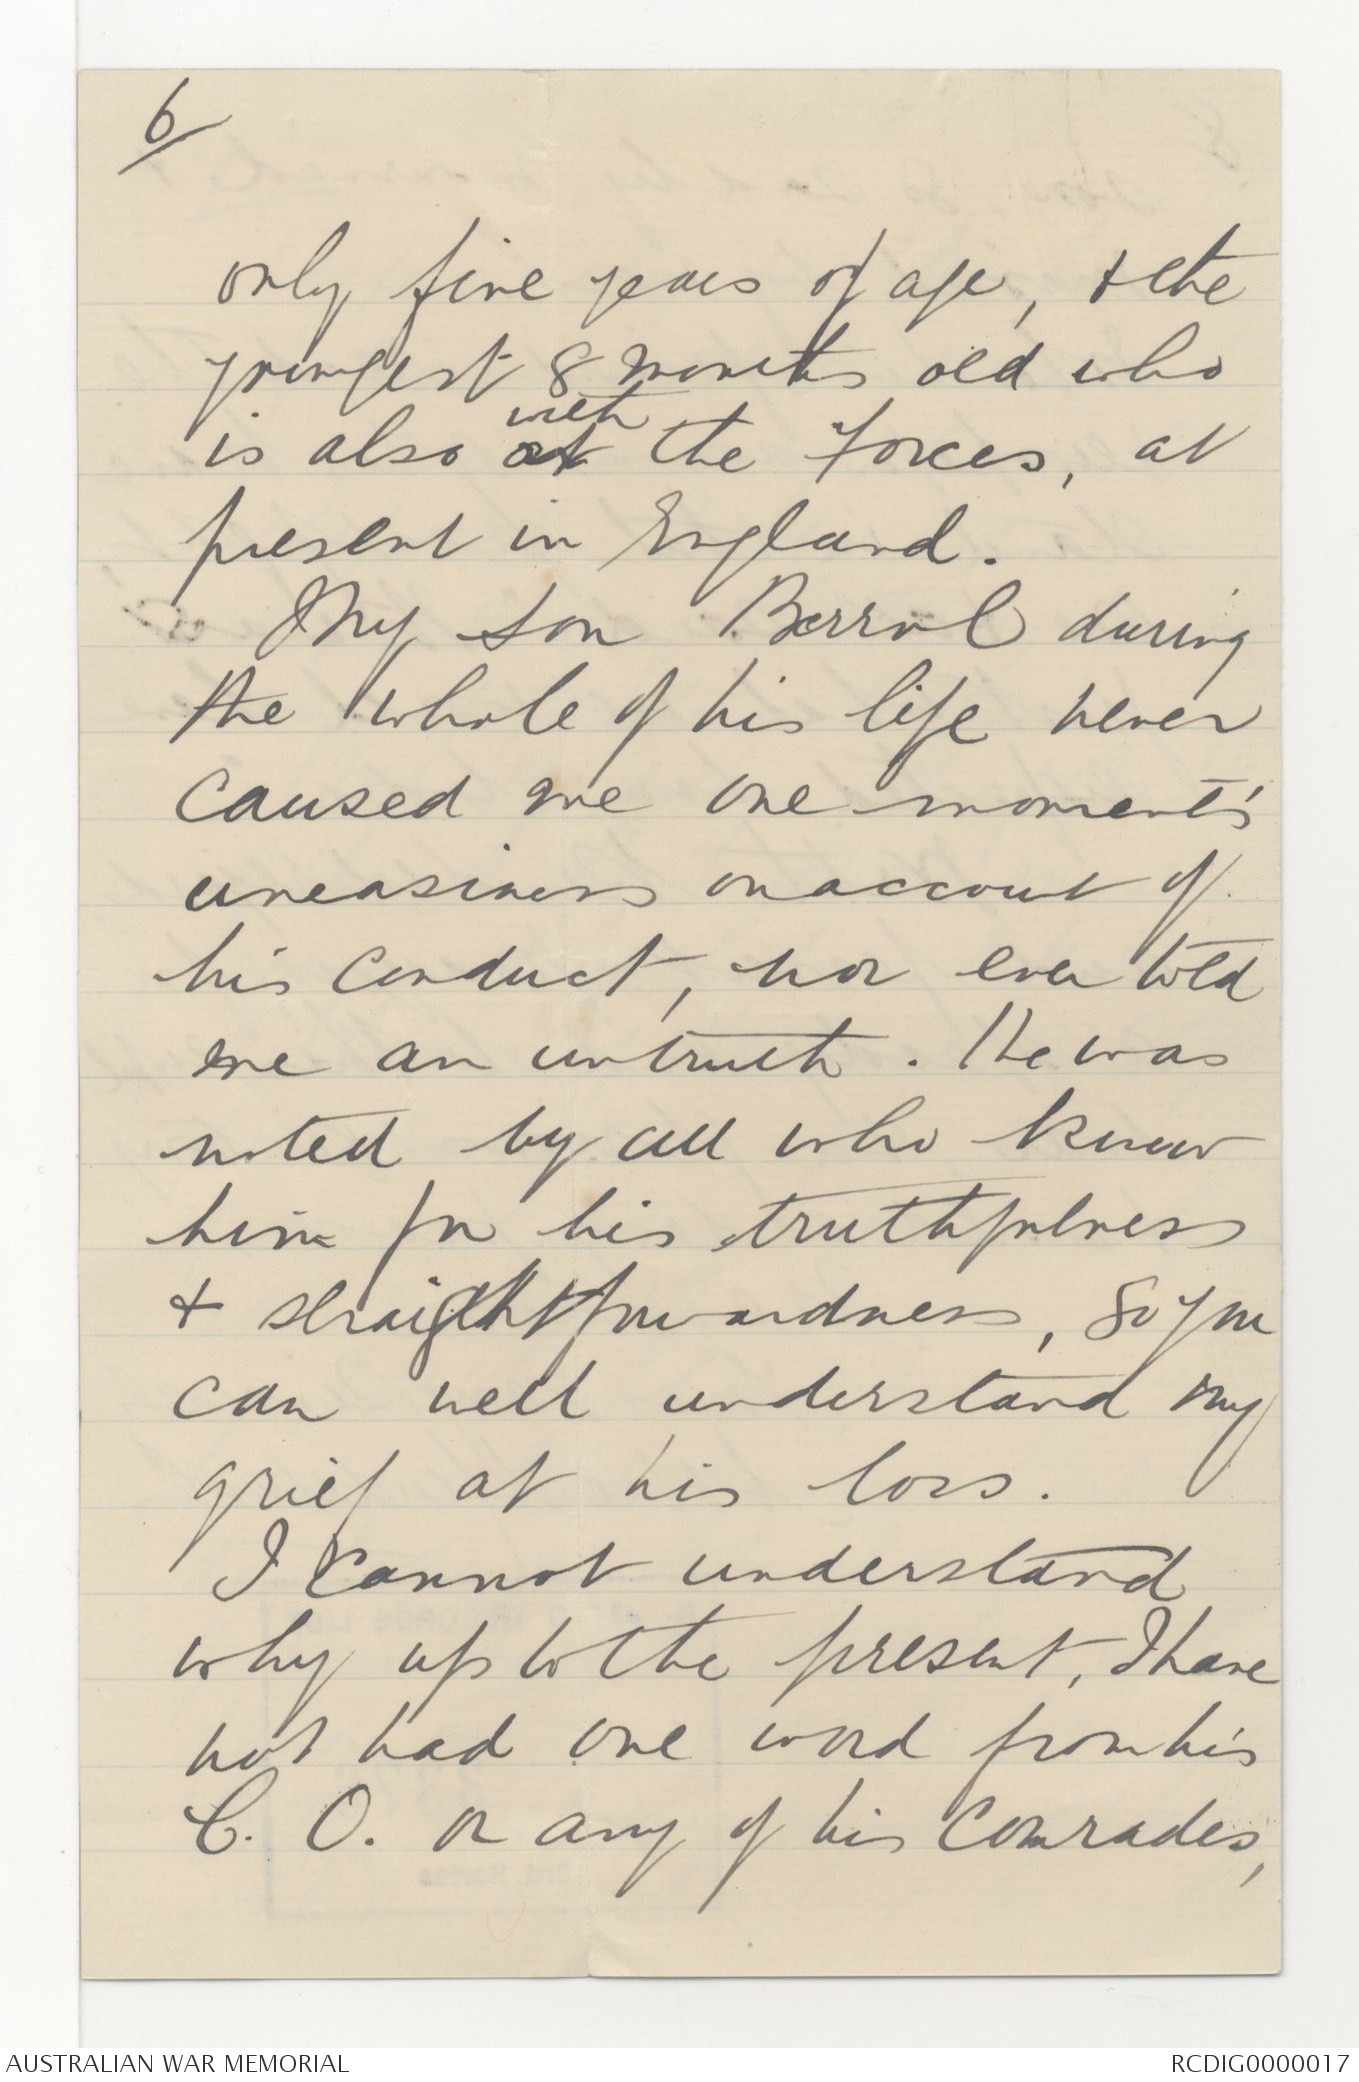 6/
only five years of age, & the
youngest 8 months old who
with
is also at the Forces, at
present in England.
My son Berrol during
the whole of his life never
caused me one moment's
uneasiness on account of
his conduct, nor ever told
me an untruth. He was
noted by all who knew
him for his truthfulness
& straightforwardness, so you
can well understand my
grief at his loss.
I cannot understand
why up to the present, I have
not had one word from his
C. O. or any of his Comrades,
AUSTRALIAN WAR MEMORIAL
RCDIG0000017